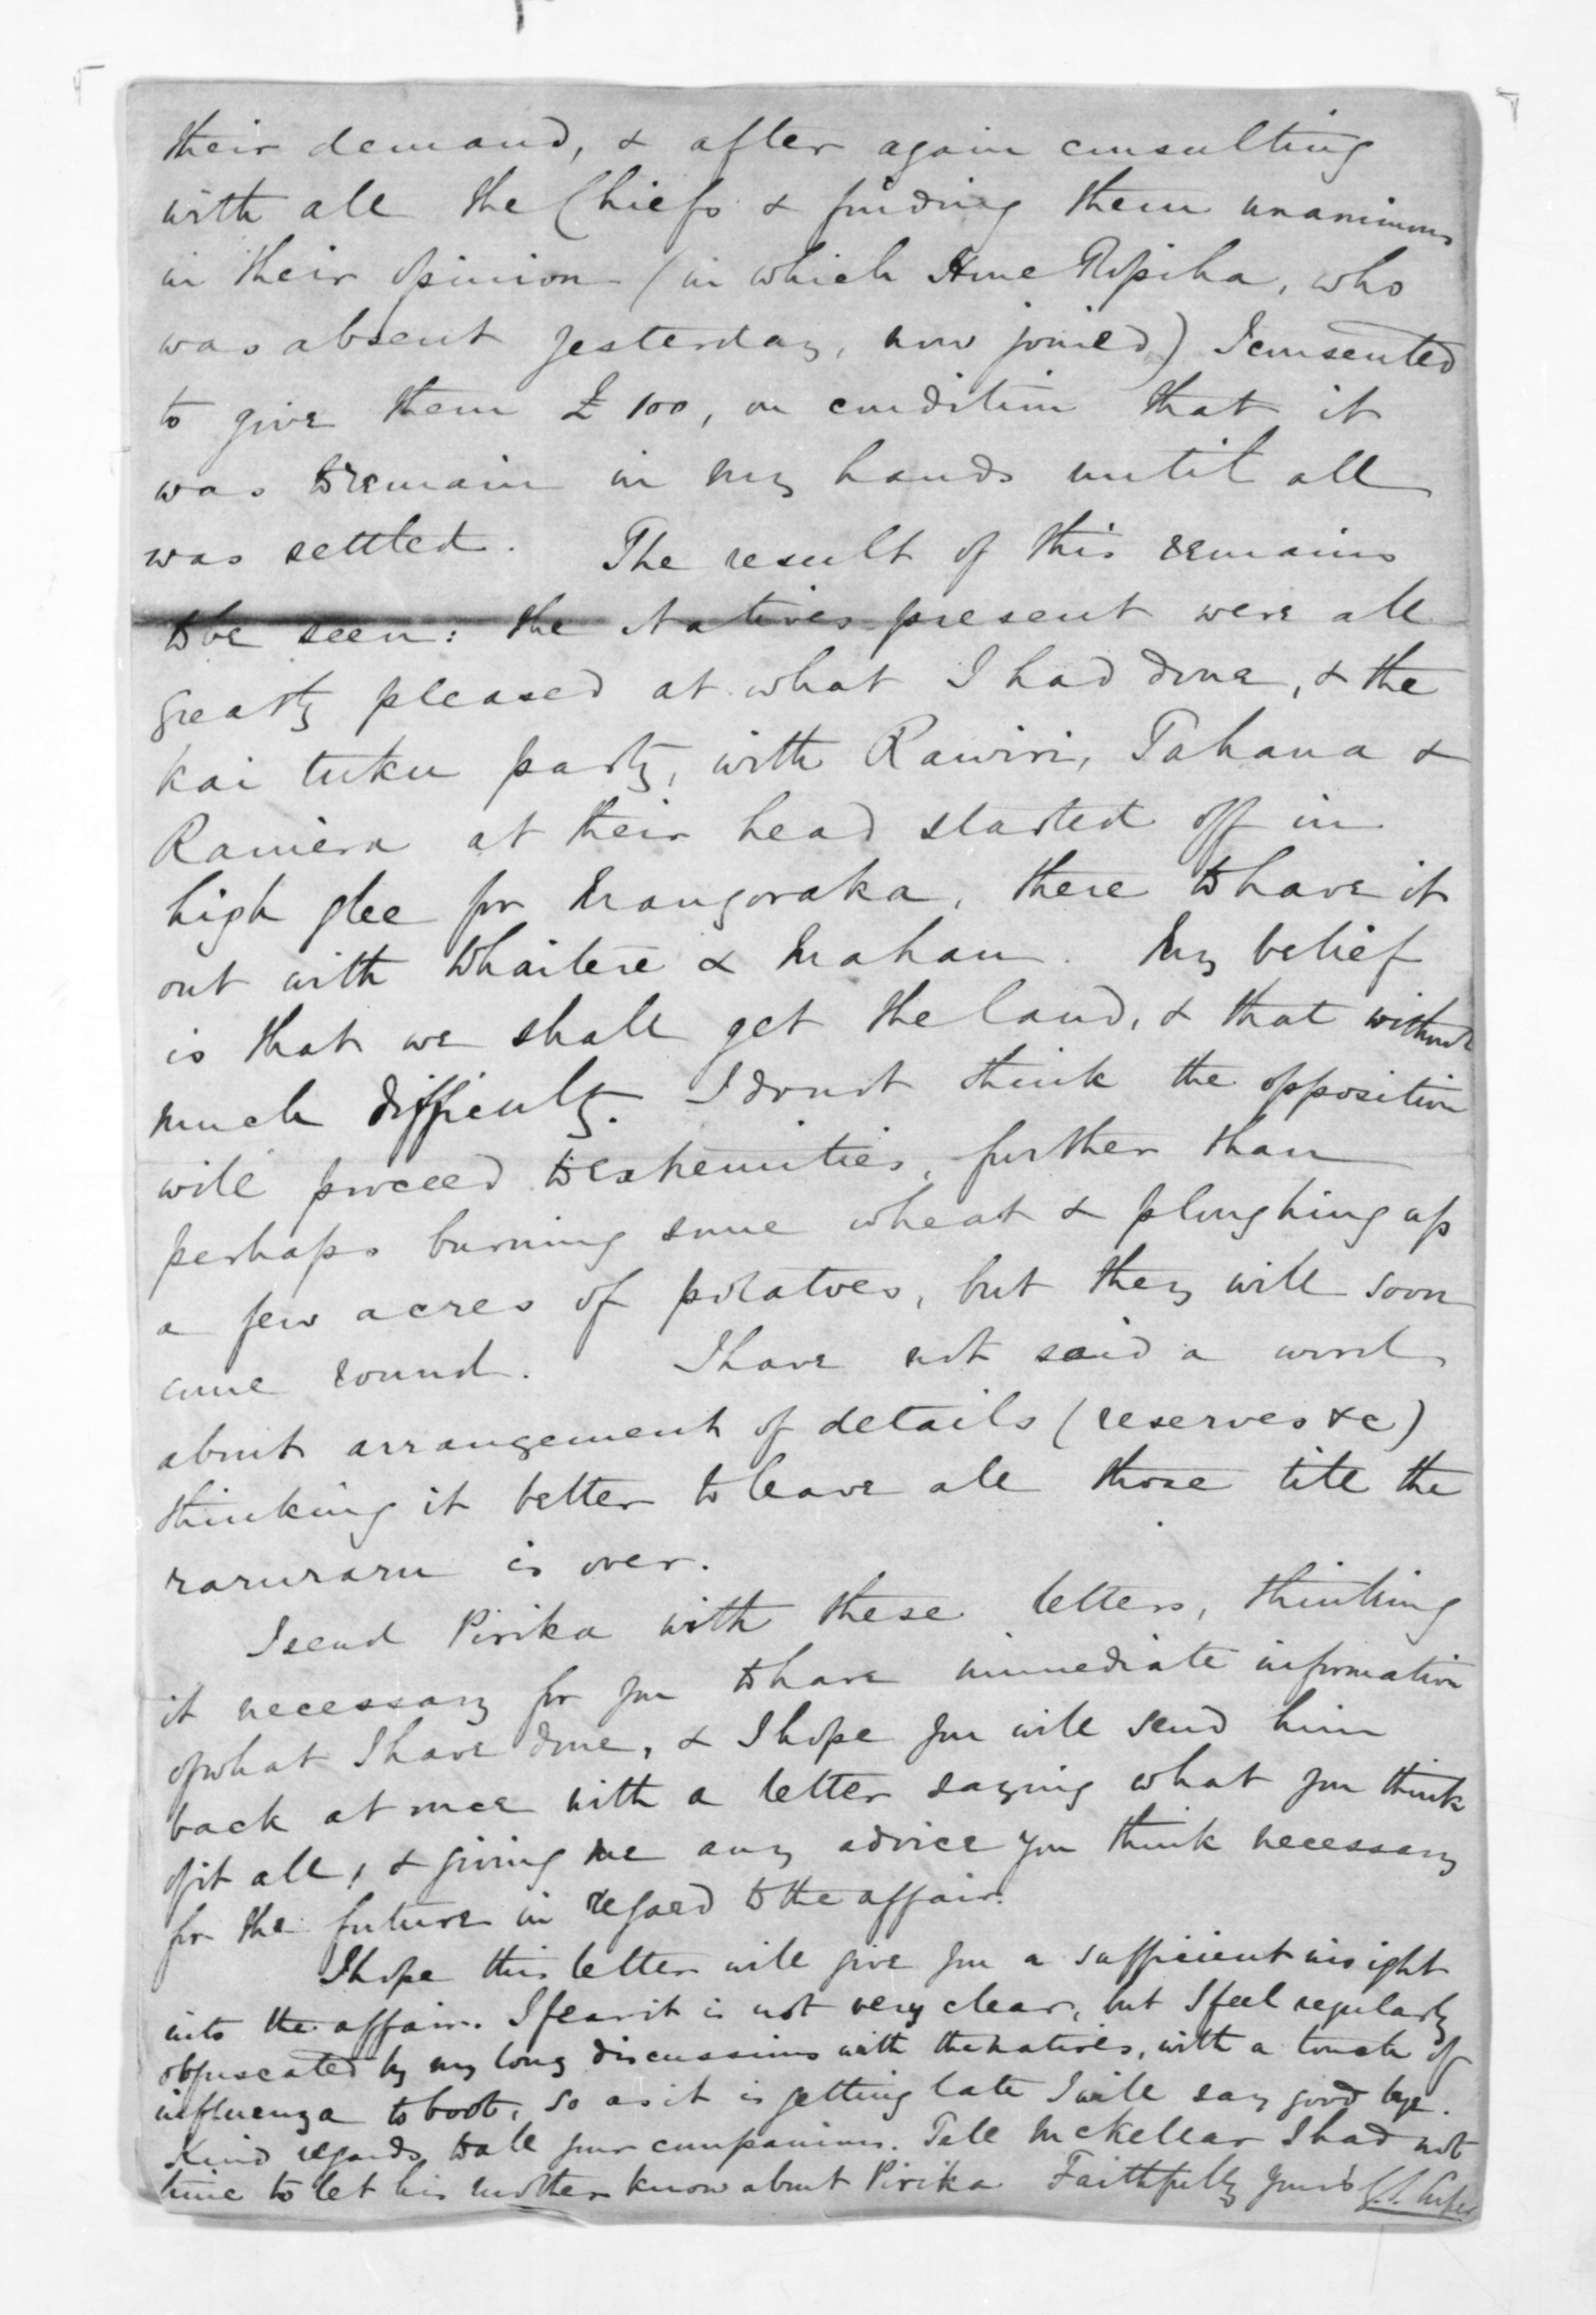 their demand, & after again consulting
with all the Chiefs & finding them unanimous
in their opinion (in which Hone Ropiha, who
was absent yesterday, now joined) I consented
to give them £100, on condition that it
was to remain in my hands until all
was settled. The result of this remains
to be seen: the Natives present were all
greatly pleased at what I had done, & the
kai tuku party, with Rawiri, Tahana &
Raniera at their head started off in
high glee for Mangoraka, there to have it
out with Whaitere & Mahau. My belief
is that we shall get the land, & that without
much difficulty. I do not think the opposition
will proceed to extremities, further than
perhaps burning some wheat & ploughing up
a few acres of potatoes, but they will soon
come round. I have not said a word
about arrangement of details (reserves &c)
thinking it better to leave all those till the
raruraru is over.
I send Pirika with these letters, thinking
it necessary for you to have immediate information
of what I have done, & I hope you will send him
back at once with a letter saying what you think
of it all, & giving me any advice you think necessary
for the future in regard to the affair.
I hope this letter will give you a sufficient insight
into the affair. I fear it is not very clear, but I feel regularly
obfuscated by my long discussions with the natives, with a touch of
influenza to boot, so as it is getting late I will say good bye.
Kind regards to all your companions. Tell McKellar I had not
time to let his mother know about Pirika Faithfully yours